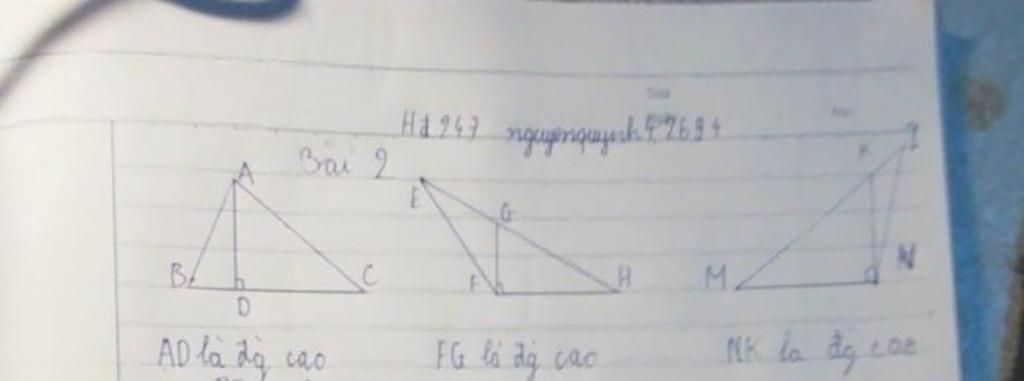 Hd 247 nguyenquynh4.2694
Bài 2
A
B
D
C
E
G
F
H
K
M
N
AD là đg cao
FG là đg cao
NK la đg cao